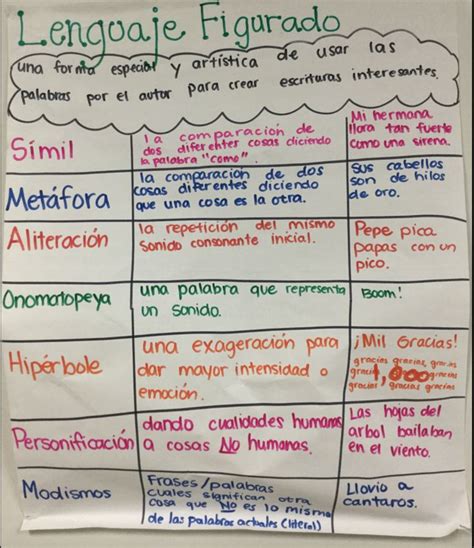 Lenguaje Figurado
una forma especial y artística de usar las
palabras por el autor para crear escrituras interesantes.
Símil
la comparación de
dos diferentes cosas diciendo
la palabra "como".
Mi hermana
llora tan fuerte
como una sirena.
Metáfora
la comparación de dos
cosas diferentes diciendo
que una cosa es la otra.
Sus cabellos
son de hilos
de oro.
Aliteración
la repetición del mismo
sonido consonante inicial.
Pepe pica
papas con un
pico.
Onomatopeya
una palabra que representa
un sonido.
Boom!
Hipérbole
una exageración para
dar mayor intensidad o
emoción.
¡Mil Gracias!
gracias gracias gracias
gracias gracias gracias
Personificación
dando cualidades humanas
a cosas No humanas.
Las hojas del
arbol bailaban
en el viento.
Modismos
Frases/palabras
cuales significan otra
cosa que NO es lo mismo
de las palabras actuales (literal)
Llovio a
cantaros.